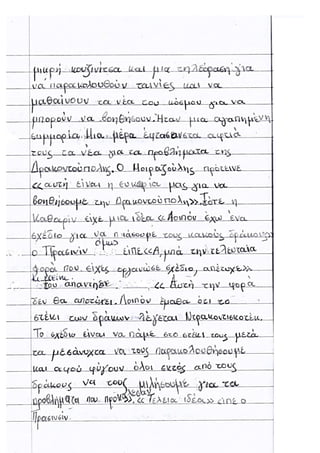 μικρή κουζινίτσα και μια τηλεόραση για
να παρακολουθούν ταινίες και να
μαθαίνουν τα νέα του κόσμου για να
μπορούν να βοηθήσουν. Ήταν μια αγαπημένη
συμμορία. Μια μέρα έφτασαν στα αφτιά
τους τα νέα για τα προβλήματα της
Δρακοντούπολης. Ο Μοιραζούλης πρότεινε
<<αυτή είναι η ευκαιρία μας για να
βοηθήσουμε την Δρακοντούπολη>>. Τότε η
Καθαρίν είχε μια ιδέα <<Λοιπόν έχω ένα
σχέδιο για να πιάσουμε τους κακούς δράκους>>
όμως
ο Πρασινίν είπε <<Α, μπα την τελευταία
φορά που είχες οργανώσει σχέδιο, απέτυχε>>
κι εκείνη
του απάντησε <<Αυτή την φορά
δεν θα αποτύχει. Λοιπόν έμαθα ότι το
στέκι των δράκων λέγεται Ντρακοντισκοτέκ.
Το σχέδιο είναι να πάμε στο στέκι τους μετά
τα μεσάνυχτα να τους παρακολουθήσουμε
και αφού φύγουν όλοι εκτός από τους
δράκους να τους μιλήσουμε για τα
προβλήματα που <<Τέλεια ιδέα>> είπε ο
Πρασινίν.